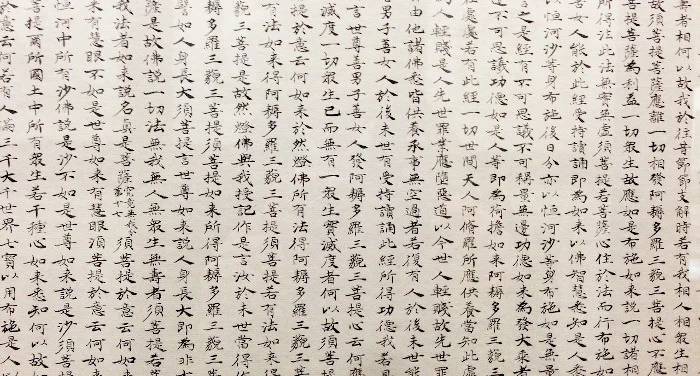 者相何以故我於往昔節節支解時若有我相人相衆生相
故須菩提菩薩應離一切相發阿耨多羅三藐三菩提心不應
提菩薩為利益一切衆生故應如是布施如來說一切諸相
所得法此法無實無虛須菩提若菩薩心住於法而行布施如
善女人能於此經受持讀誦即為如來以佛智慧悉知是人悉
以恒河沙等身布施後日分亦以恒河沙等身布施如是無量
言之是經有不可思議不可稱量無邊功德如來為發大乘者
邊不可思議功德如是人等即為荷擔如來阿耨多羅三
在處處若有此經一切世間天人阿修羅所應供養當知此處
人輕賤是人先世罪業應墮惡道以今世人輕賤故先世罪
由他諸佛悉皆供養承事無空過者若復有人於後末世能
男子善女人於後末世有受持讀誦此經所得功德我若具
言世尊善男子善女人發阿耨多羅三藐三菩提心云何應
滅度一切衆生已而無有一衆生實滅度者何以故須菩提
提於意云何如來於然燈佛所有法得阿耨多羅三藐三菩提
有法如來得阿耨多羅三藐三菩提須菩提若有法如來得
三藐三菩提是故然燈佛與我授記作是言汝於來世當得作
耨多羅三藐三菩提須菩提如來所得阿耨多羅三藐三
譬如人身長大須菩提言世尊如來說人身長大即為非大
薩是故佛說一切法無我無人無衆生無壽者須菩提若菩
我法者如來說名真是菩薩 須菩提於意云何如
來有慧眼不如是世尊如來有慧眼須菩提於意云何如來
恒河中所有沙佛說是沙不如是世尊如來說是沙須菩提
菩提爾所國土中所有衆生若干種心如來悉知何以故如
於意云何若有人滿三千大千世界七寶以用布施是人以